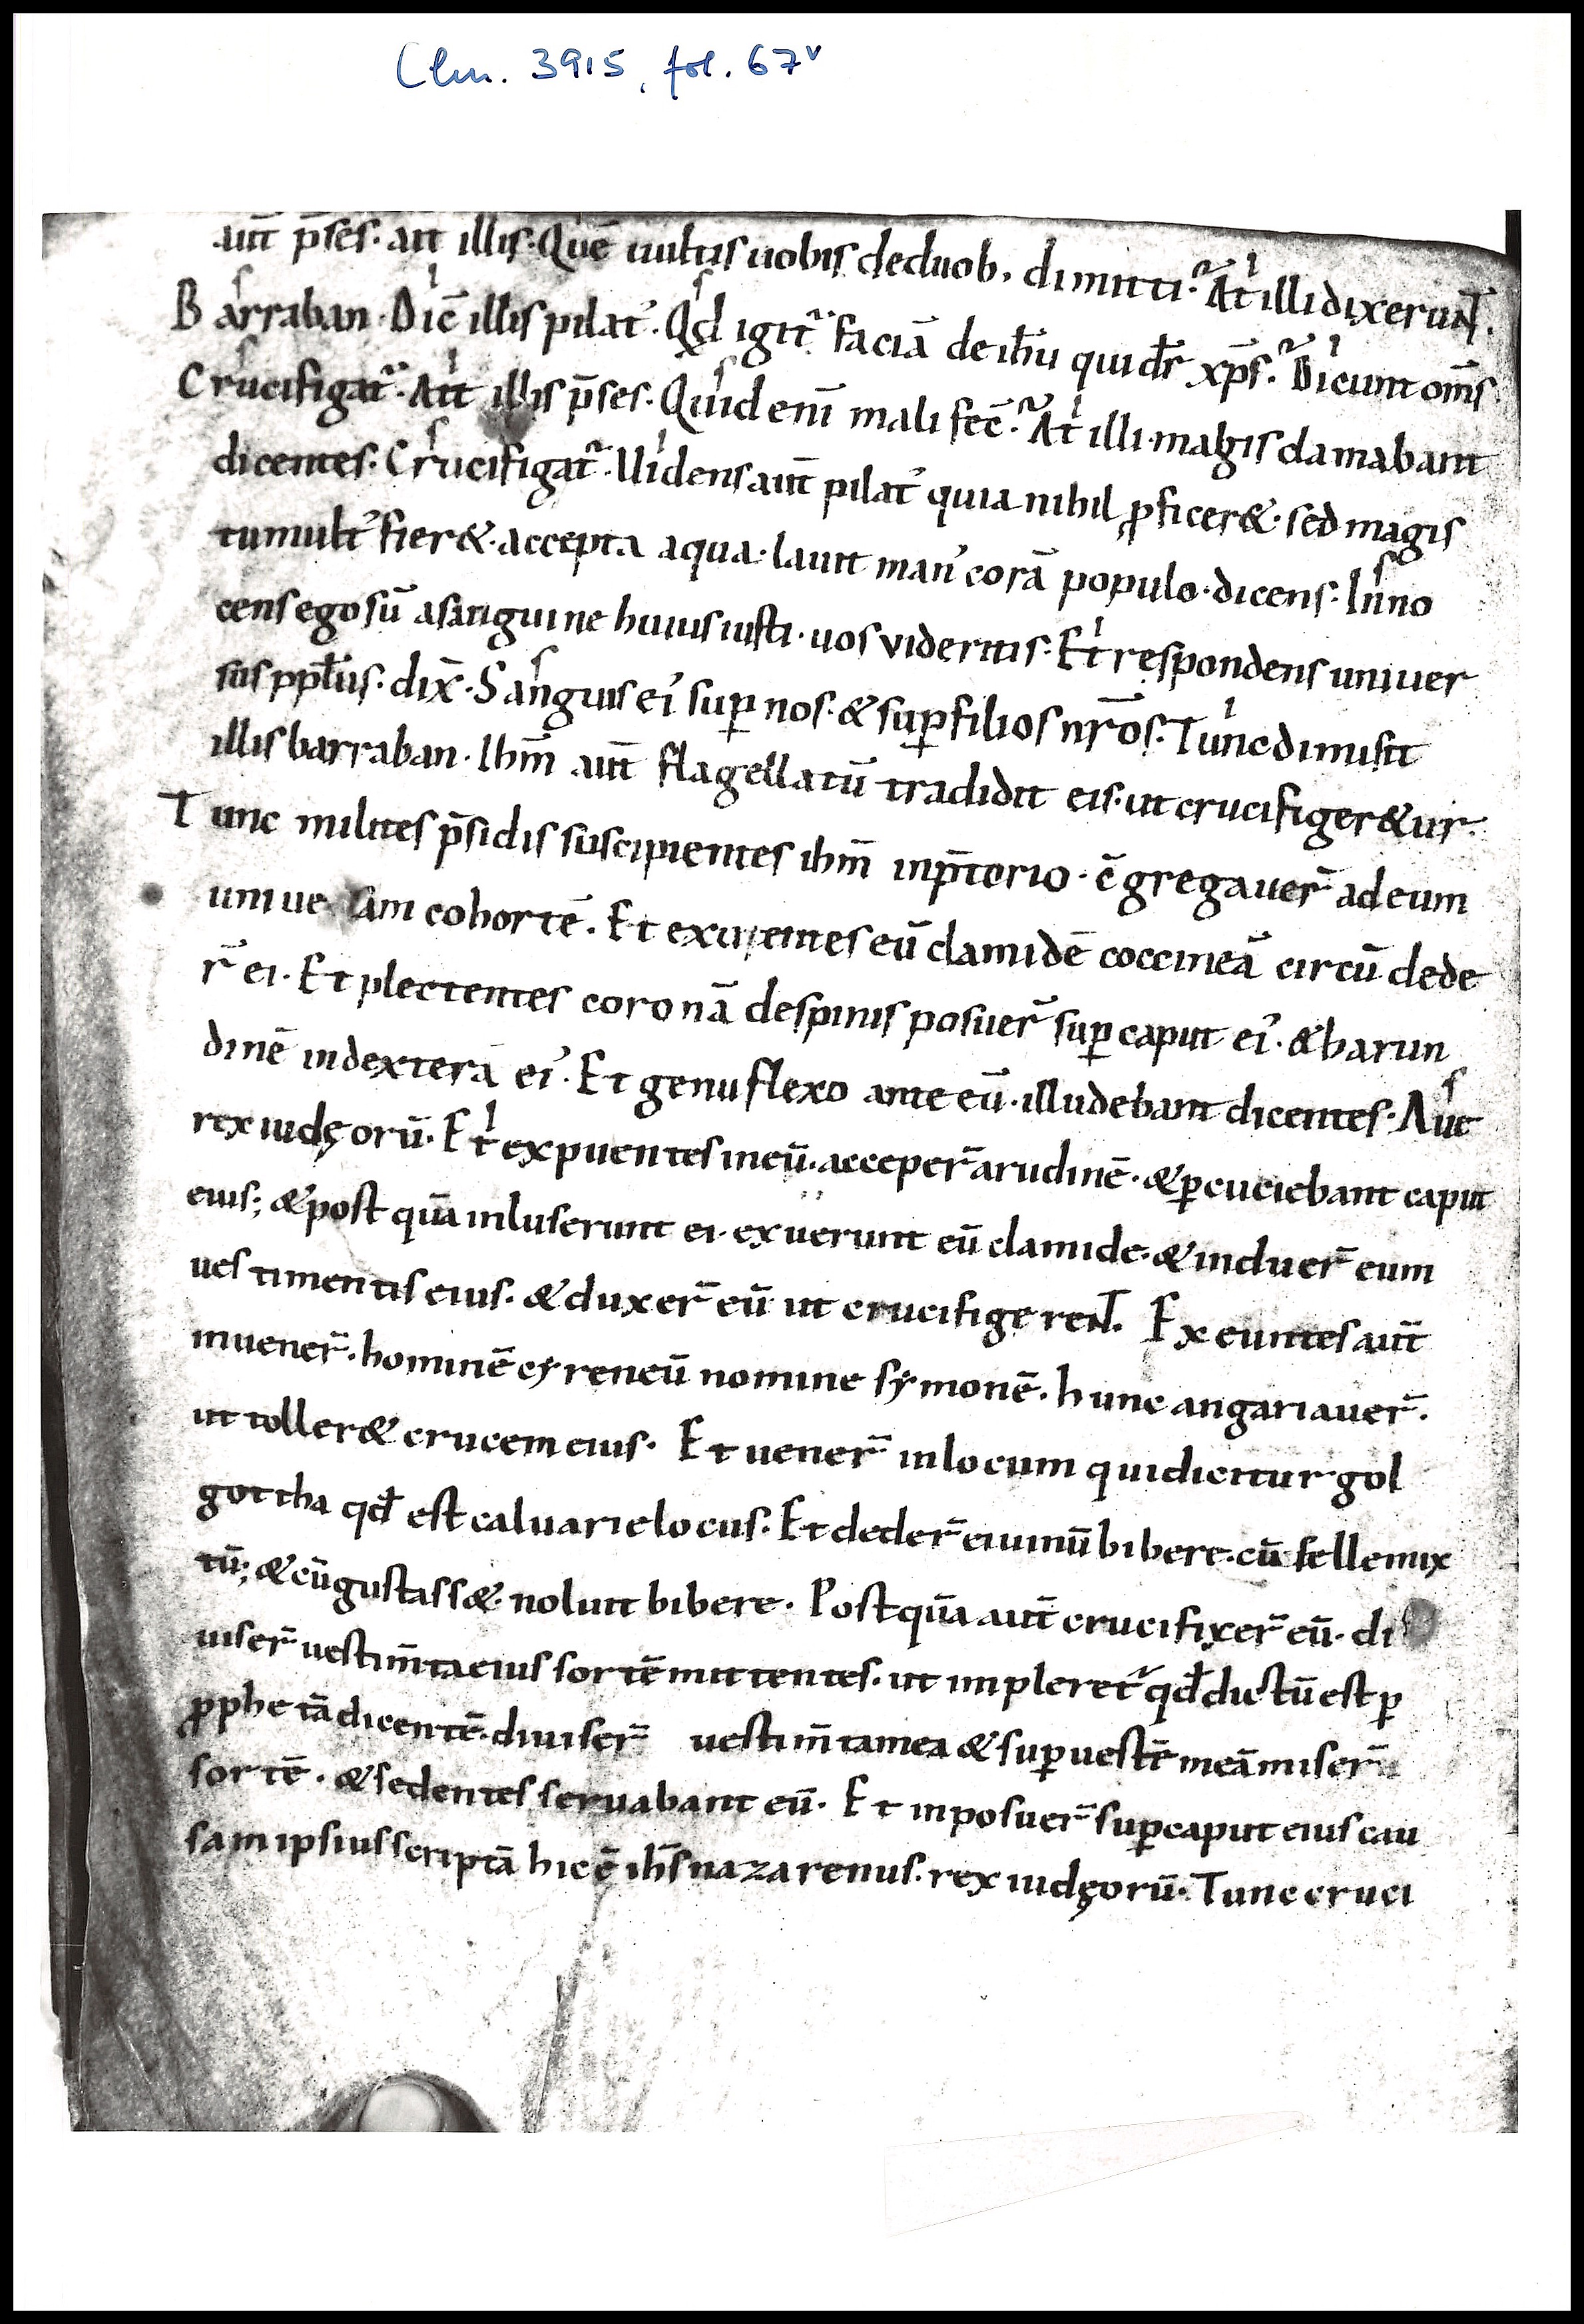 Clm. 3915, fol. 67v
aut̄ p̄ses. ait illis. Quē uultis uobis deduob. dimitti? At illi dixerunt.
Barraban. Dic̄ illis pilat᾽. Qd igit᷑ faciā de ih̄u qui dr̄ xp̄s? Dicunt om̄s
Crucifigat᷑. Ait illis p̄ses. Quid enī mali fec̄? At illi magis clamabant
dicentes. Crucifigat᷑. Uidens aut̄ pilat᾽ quia nihil ꝓficer&. sed magis
tumult᾽ fier&. accepta aqua. lauit man᾽ corā populo. dicens. Inno
cens ego sū asanguine huius iusti. uos videritis. Et respondens uniuer
sus ppl̄us. dix̄. Sanguis ei᾽ suꝑ nos. & suꝑ filios nr̄os. Tunc dimisit
illis barraban. Ihm̄ aut̄ flagellatū tradidit eis. ut crucifiger&ur.
Tunc milites p̄sidis suscipientes ihm̄ inp̄torio. c̄gregauer̄ ad eum
uniue sam cohortē. Et exuentes eū clamidē coccineā circū dede
r̄ ei. Et plectentes coronā despinis posuer̄ suꝑ caput ei᾽. & harun
dinē indexterā ei᾽. Et genu flexo ante eū. illudebant dicentes. Aue
rex iudęorū. Et expuentes ineū. acceper̄ arudinē. & ꝑcuciebant caput
eius; & post quā inluserunt ei. exuerunt eū clamide. & induer̄ eum
uestimentis eius. & duxer̄ eū ut crucifigerent. Exeuntes aut̄
inuener̄. hominē cyreneū nomine symonē. hunc angariauer̄.
ut toller& crucem eius. Et uener̄ inlocum quidicitur gol
gottha qd̄ est caluarie locus. Et deder̄ ei uinū bibere. cū felle mix
tū; & cū gustass&. noluit bibere. Postquā aut̄ crucifixer̄ eū. di
uiser̄ uestim̄ta eius sortē mittentes. ut impleret᷑ qd̄ dictū est ꝑ
ꝓphetā dicentē. diuiser̄ uestim̄ta mea & suꝑ uestē meā miser̄
sortē. & sedentes seruabant eū. Et inposuer̄ suꝑ caput eius cau
sam ipsius scriptā hic ē ih̄s nazarenus. rex iudęorū. Tunc cruci